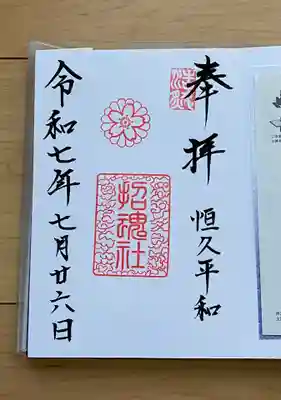 奉拝
恒久平和
招魂社
令和七年七月廿六日